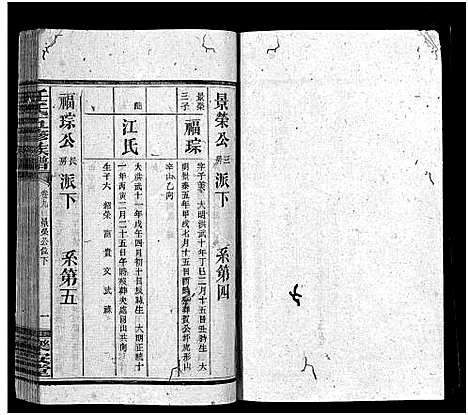 景榮公三房派下 系第四
景榮三子
福琮
字子美 大明洪武十年丁巳二月十五日巳時生 大
明景泰五年甲戌七月十五日酉時葬賀公坪虎形山
辛山乙向
配
江氏
大洪武十一年戊午四月初十日辰時生 大明正統十
一年丙寅二月二十五日午時葬夫處同山共向
生子六 紹榮 高 貴 文 武 祿
福琮公長房派下 系第五
五修族譜
卷九 景榮公派下
一